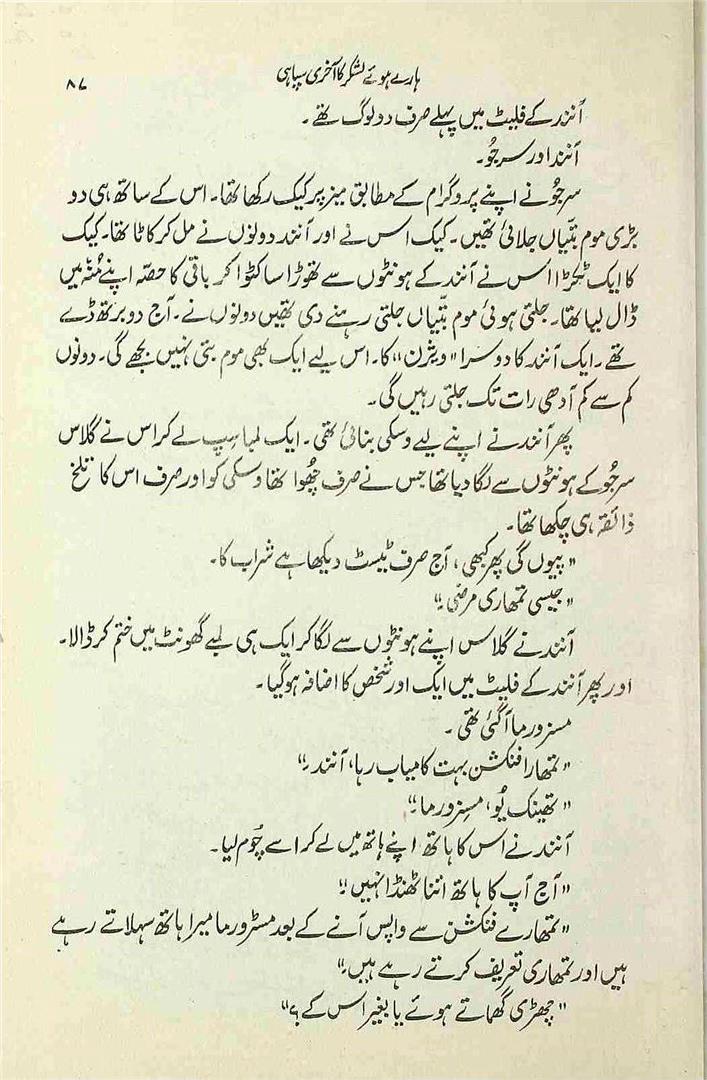 ہارے ہوئے لشکر کا آخری سپاہی
۸۷
آنند کے فلیٹ میں پہلے صرف دو لوگ تھے۔
آنند اور سرجُو۔
سرجُو نے اپنے پروگرام کے مطابق میز پر کیک رکھا تھا۔ اس کے ساتھ ہی دو
بڑی موم بتّیاں جلائی تھیں۔ کیک اس نے اور آنند دونوں نے مل کر کاٹا تھا۔ کیک
کا ایک ٹکڑا اس نے آنند کے ہونٹوں سے تھوڑا سا کٹوا کر باقی کا حصّہ اپنے مُنھ میں
ڈال لیا تھا۔ جلتی ہوئی موم بتّیاں جلتی رہنے دی تھیں دونوں نے۔ آج دو برتھ ڈے
تھے۔ ایک آنند کا دوسرا "ویژن" کا۔ اس لیے ایک بھی موم بتی نہیں بجھے گی۔ دونوں
کم سے کم آدھی رات تک جلتی رہیں گی۔
پھر آنند نے اپنے لیے وسکی بنائی تھی۔ ایک لمبا سِپ لے کر اس نے گلاس
سرجُو کے ہونٹوں سے لگا دیا تھا جس نے صرف چُھوا تھا وسکی کو اور صرف اس کا تلخ
ذائقہ ہی چکھا تھا۔
"پیوں گی پھر کبھی، آج صرف ٹیسٹ دیکھا ہے شراب کا۔
"جیسی تمھاری مرضی۔"
آنند نے گلاس اپنے ہونٹوں سے لگا کر ایک ہی لمبے گھونٹ میں ختم کر ڈالا۔
اور پھر آنند کے فلیٹ میں ایک اور شخص کا اضافہ ہوگیا۔
مسز ورما آگئی تھی۔
"تمھارا فنکشن بہت کامیاب رہا، آنند۔"
"تھینک یُو، مسز ورما۔"
آنند نے اس کا ہاتھ اپنے ہاتھ میں لے کر اسے چُوم لیا۔
"آج آپ کا ہاتھ اتنا ٹھنڈا نہیں!"
"تمھارے فنکشن سے واپس آنے کے بعد مسٹر ورما میرا ہاتھ سہلاتے رہے
ہیں اور تمھاری تعریف کرتے رہے ہیں۔"
"چھڑی گھماتے ہوئے یا بغیر اس کے؟"